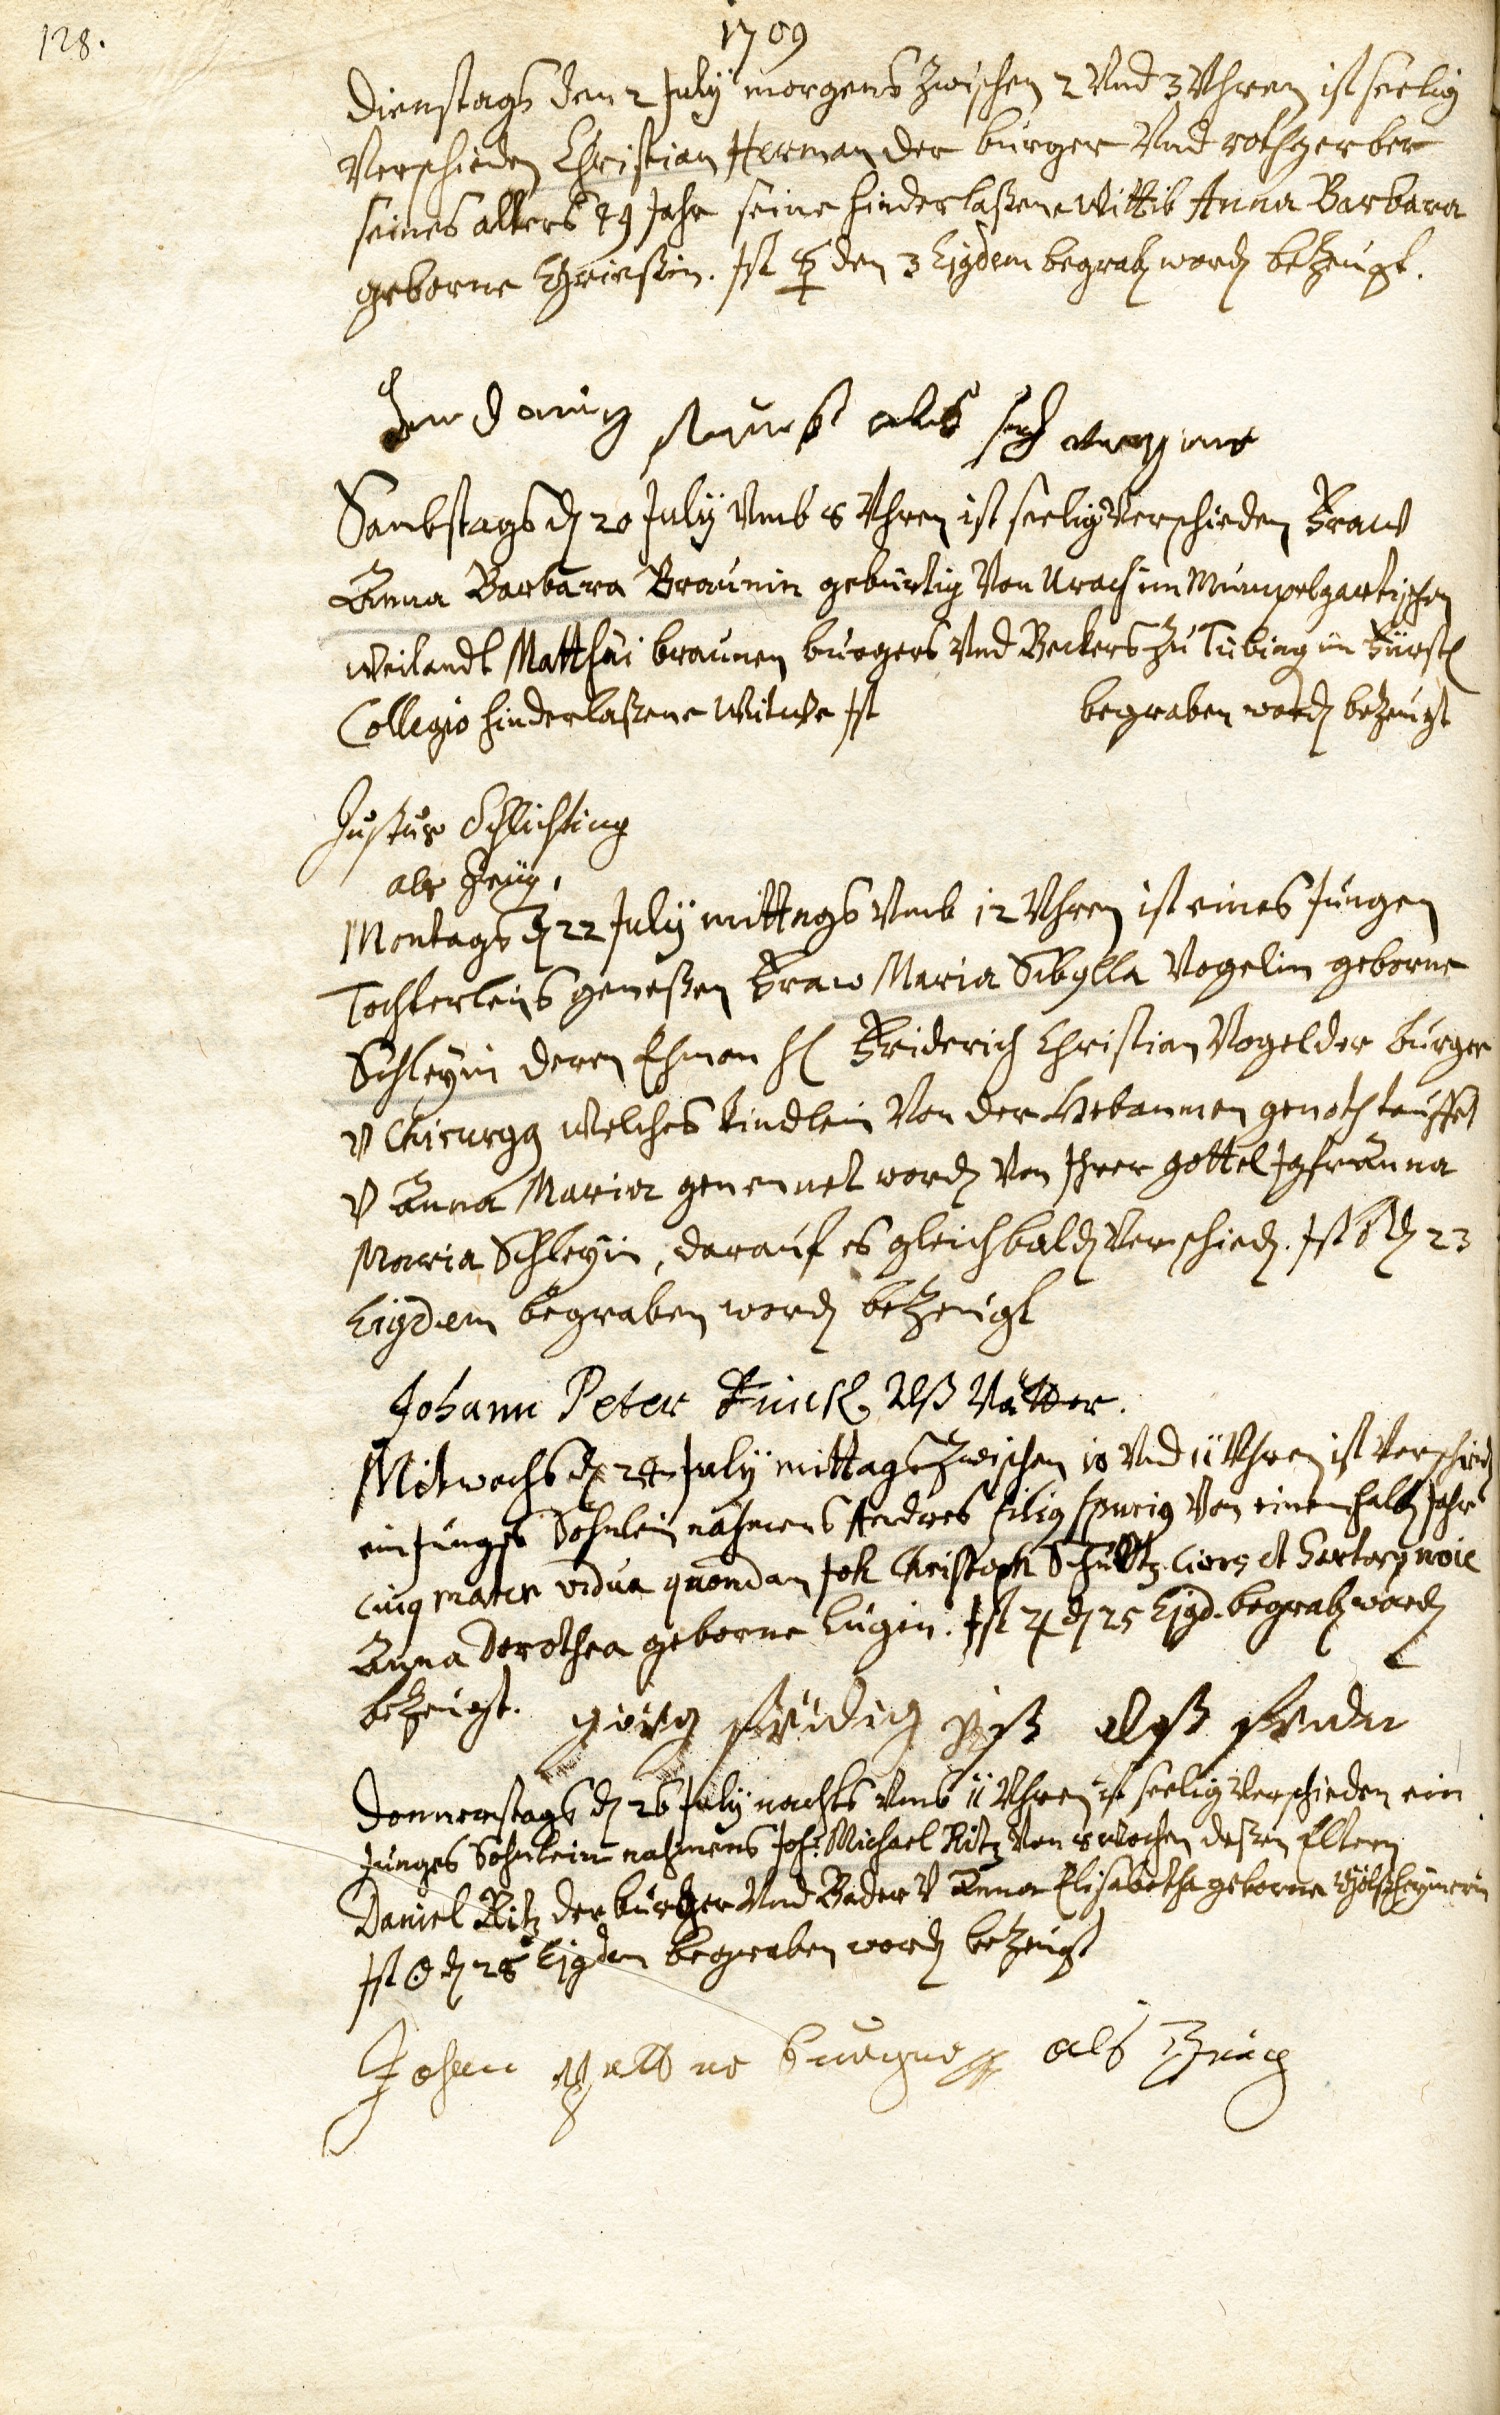 128.
1709
Dienstags den 2 July morgens zwischen 2 Vnd 3 Vhren ist seelig
Verschieden Christian Herman der burger Vnd rothgerber
seines alters 79 Jahr seine hinderlaßene Wittib Anna Barbara
geborne. Ist ☿ den 3 Ejgdem begrab word bezeugt.
als
Sambstags d 20 July Vmb 8 Vhren ist seelig Verschieden Fraw
Anna Barbara Braunin gebürtig Von Urach im Mumpelgartischen
Weilandt Matthäi braunen burgers Vnd Beckers zu Tübing im Fürstl
Collegio hinderlaßene Witwe Ist begraben word bezeugt
Justus Schlichting
als Zeug.
Montags d 22 July mittags Vmb 12 Vhren ist eines Jungen
Töchterleins geneßen Fraw Maria Sibylla Vogelin geborne
Schleyin deren Ehman H Friderich Christian Vogel der burger
V Chirurg welches kindlein Von der Hebammen genothtaufft
V Anna Maria genennet word Von Ihrer gottel Jgfr Anna
Maria Schleyin, darauf es gleich bald Verschied. Ist ♂ d 23
Ejgdem begraben word bezeugt
Johann Peter Finck Alß Vatter.
Mitwochs d 24 July mittags Zwischen 10 Vnd 11 Vhren ist Verschied
ein Junges Söhnlein nahmens Andres filig spurig Von einem halb Jahr
cuig mater vidua quondam Joh Christoph Schultz civis et Sartorg noie
Anna Dorothea geborne Lugin. Ist ♃ d 25 Ejgd. begrab word
bezeugt. görg alß
Donnerstags d 26 July nachts Vmb 11 Vhren ist seelig Verschieden ein
Junges Söhnlein nahmens Joh: Michael Ritz Von 8 Wochen deßen Eltern
Daniel Ritz der burger Vnd Bader V Anna Elisabetha geborne
Ist ☉ d 28 Ejgdem begraben word bezeugt
Johan als Zeug